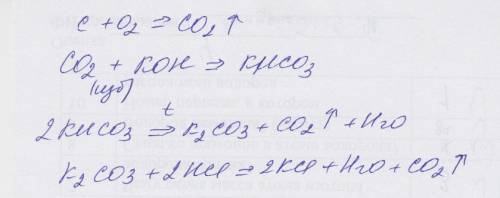 C + O2 = CO2↑
CO2 + KOH ⇒ KHCO3
(изб)
t
2KHCO3 ⇒ K2CO3 + CO2↑ + H2O
K2CO3 + 2HCl = 2KCl + H2O + CO2↑